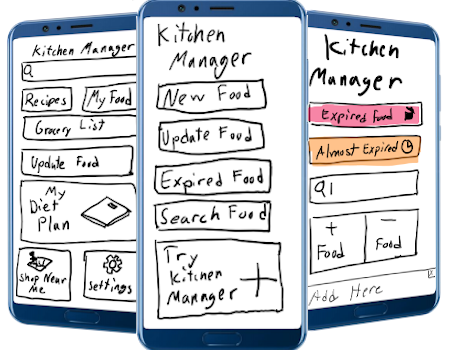 Kitchen Manager
Recipes
My Food
Grocery List
Update Food
My
Diet
Plan
Shop Near
Me
Settings
Kitchen
Manager
New Food
Update Food
Expired Food
Search Food
Try
Kitchen
Manager
Kitchen
Manager
Expired Food
Almost Expired
+
Food
-
Food
Add Here